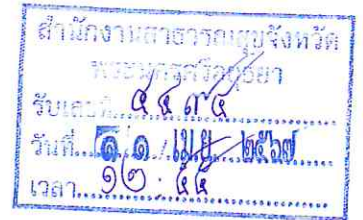 สำนักงานสาธารณสุขจังหวัด
พระนครศรีอยุธยา
รับเลขที่ ๔๔๙๔
วันที่ ๑ ๑ เม.ย. ๒๕๖๗
เวลา ๑๒.๕๕